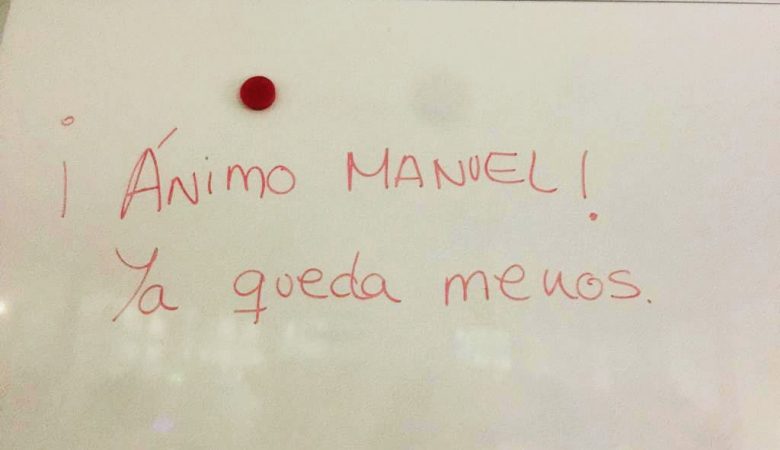 ¡ÁNIMO MANUEL!
Ya queda menos.